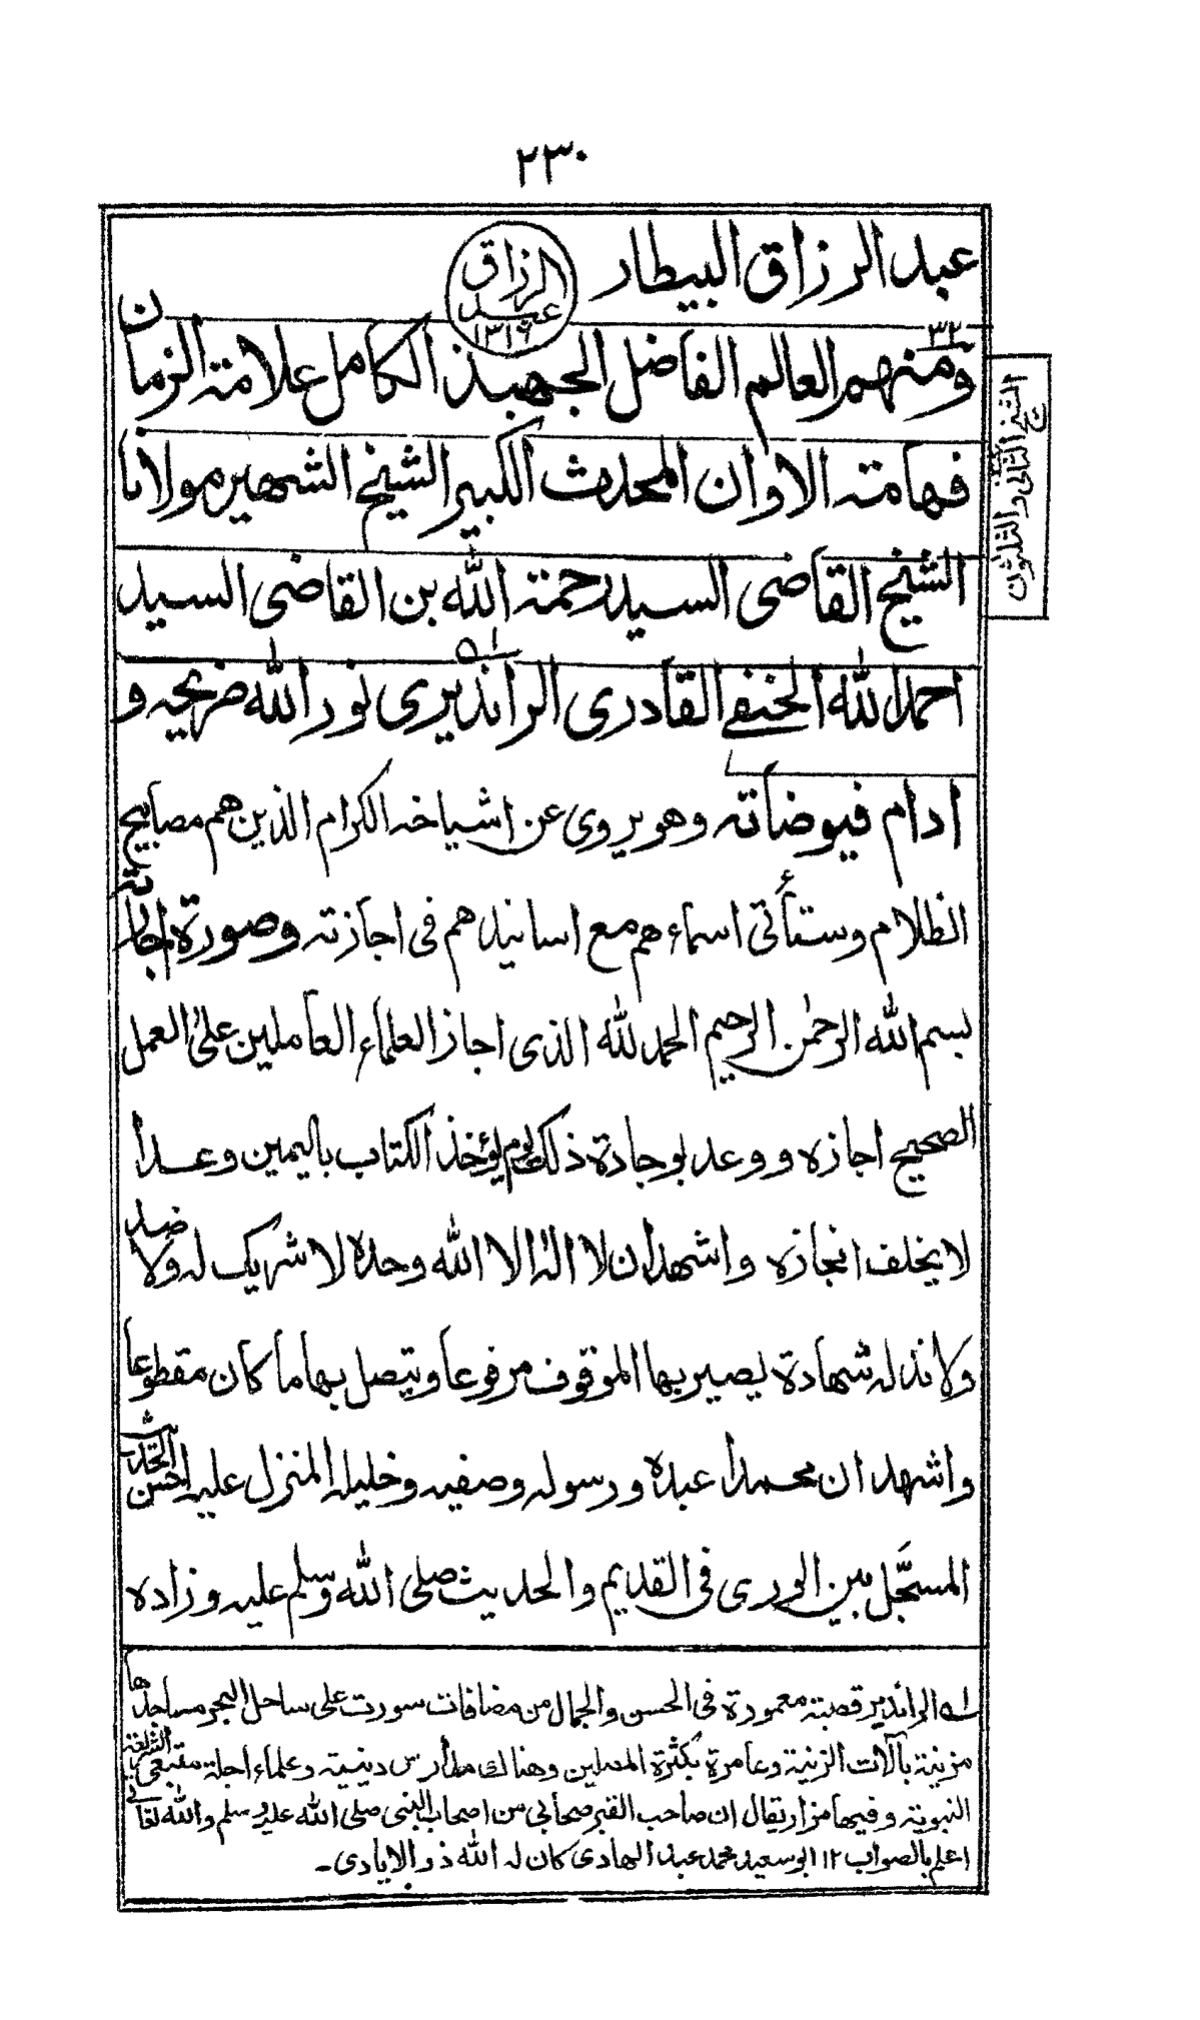 ٢٣٠
عبد الرزاق البيطار
عبد الرزاق ١٣١٦
٣٢
ومنهم العالم الفاضل الجهبذ الكامل علامة الزمان
الشيخ الثاني والثلثون
فهامة الاوان المحدث الكبير الشيخ الشهير مولانا
الشيخ القاضى السيد رحمة الله بن القاضى السيد
احمد الله الحنفى القادرى الرانديرى نور الله ضريحه و
ادام فيوضاته وهو يروى عن اشياخه الكرام الذين هم مصابيح
الظلام وستأتى اسماءهم مع اسانيدهم فى اجازته وصورة اجازته
بسم الله الرحمن الرحيم الحمد لله الذى اجاز العلماء العاملين على العمل
الصحيح اجازه ووعد بوجادة ذلك يوم يؤخذ الكتاب باليمين وعداً
لا يخلف انجازه واشهد ان لا اله الا الله وحده لا شريك له ولا ضد
ولا ند له شهادة يصير بها الموقوف مرفوعا ويتصل بها ما كان مقطوعا
واشهد ان محمداً عبده ورسوله وصفيه وخليله المنزل عليه احسن الحديث
المسجَّل بين الورى فى القديم والحديث صلى الله وسلم عليه وزاده
له الراندير قصبة معمورة فى الحسن والجمال من مضافات سورت على ساحل البحر مساجدها
مزينة بآلات الزينة وعامرة بكثرة المصلين وهناك مدارس دينية وعلماء اجلة متبعى الشريعة
النبوية وفيها مزار يقال ان صاحب القبر صحابى من اصحاب النبى صلى الله عليه وسلم والله تعالى
اعلم بالصواب ١٢ ابو سعيد محمد عبد الهادى كان له الله ذو الايادى ـ